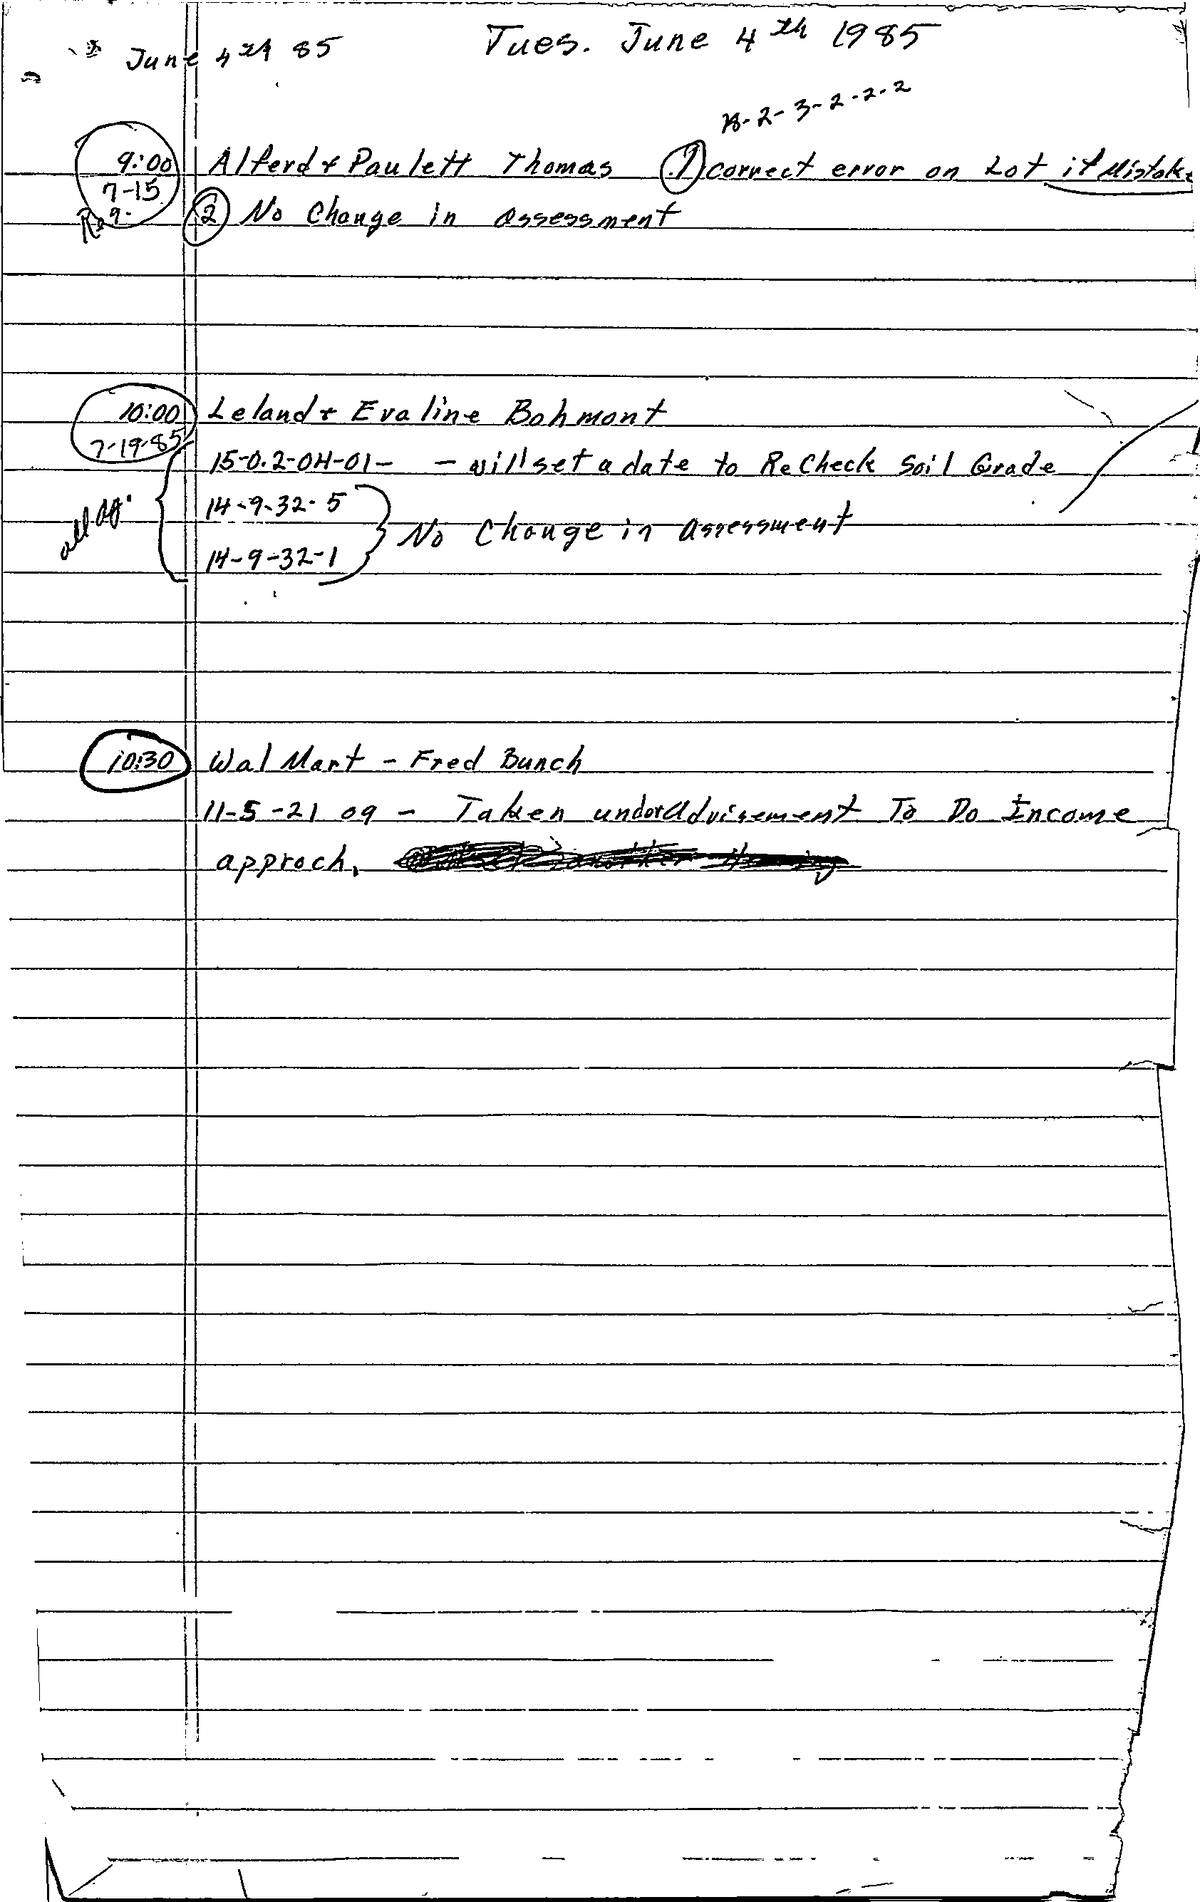 June 4th 85
Tues. June 4th 1985
18-2-3-2-2-2
9:00 Alferd & Paulett Thomas (1) correct error on Lot if Mistake
7-15
(2) No Change in assessment
10:00 Leland & Evaline Bohmont
7-19-85
15-0.2-04-01- - will set a date to ReCheck Soil Grade
all ag.
14-9-32-5
No Change in assessment
14-9-32-1
10:30 Wal Mart - Fred Bunch
11-5-21 09 - Taken under advisement To Do Income
approch.